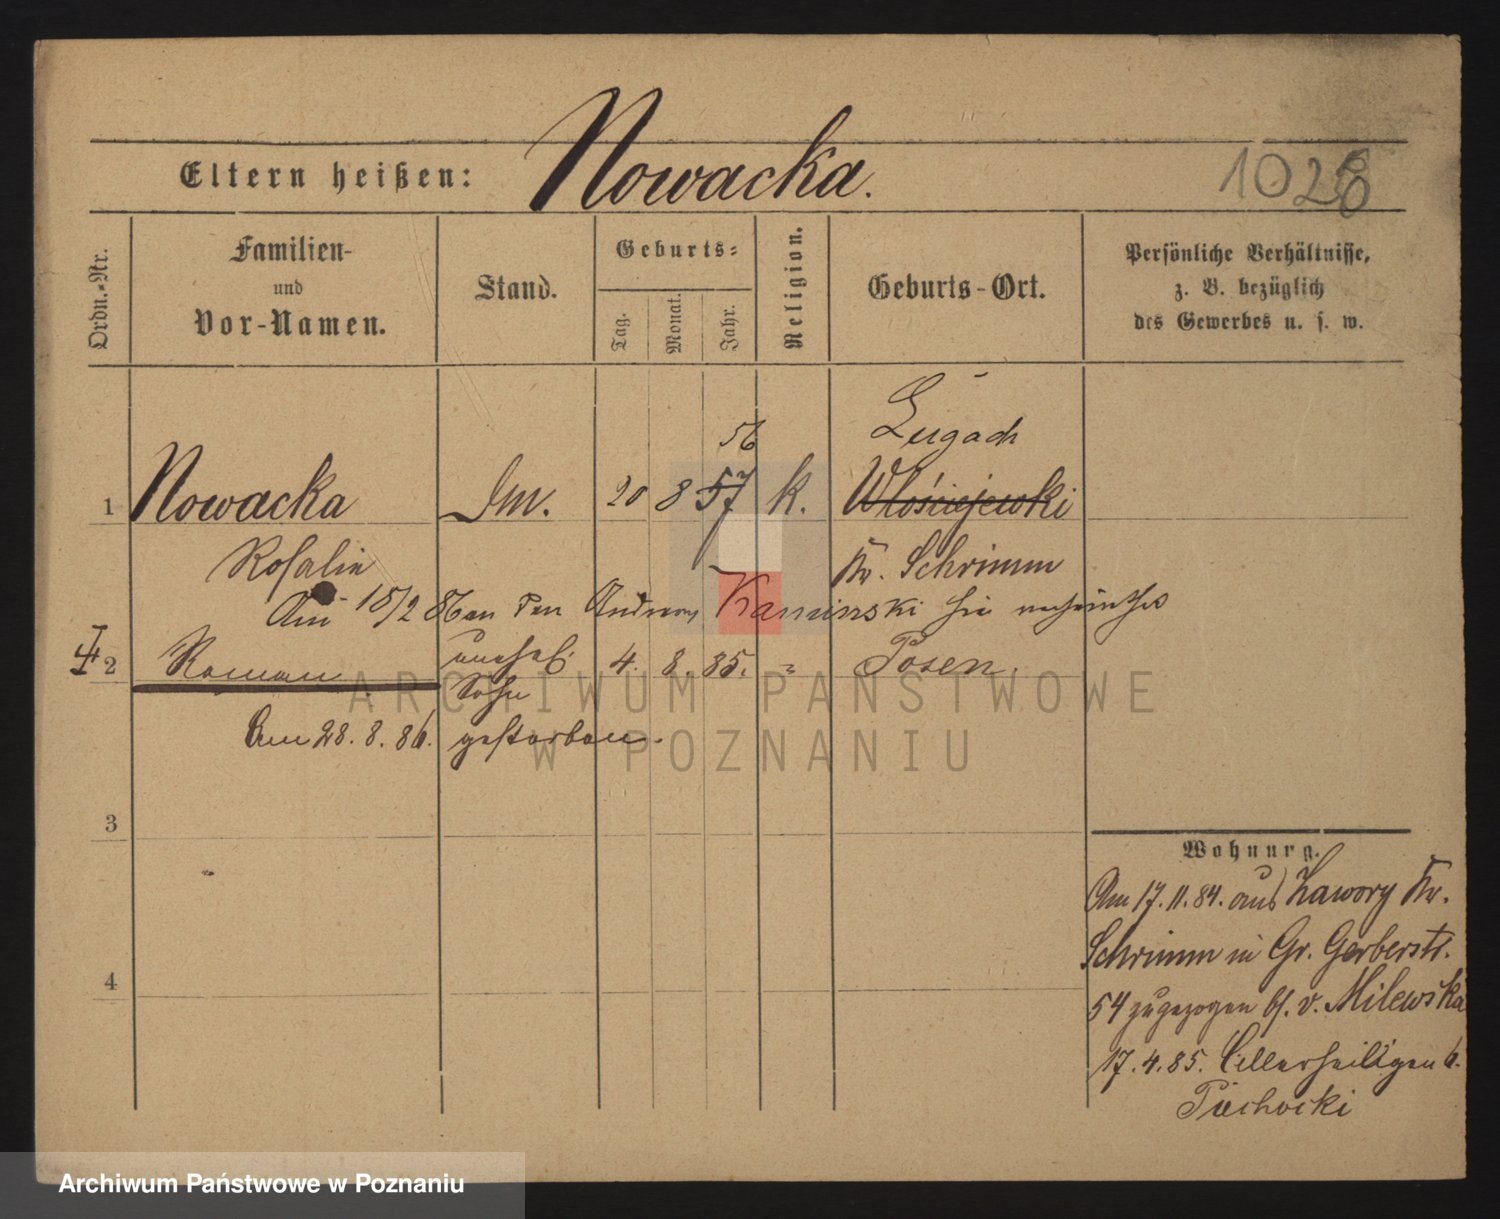 Eltern heißen: Nowacka.
1028
Ordn.-Nr.
Familien-
und
Vor-Namen.
Stand.
Geburts-
Tag. Monat. Jahr.
Religion.
Geburts-Ort.
Persönliche Verhältnisse,
z. B. bezüglich
des Gewerbes u. s. w.
Lugach
56
1 Nowacka 20 8 57 k. Włościejewki
Rosalie Kr. Schrimm
Am 15/2 86 an den Andreas Kaminski hier verheirathet
2 Roman unehel. 4. 8. 85. " Posen.
Sohn
Am 28. 8. 86. gestorben.
3
4
Wohnung.
Am 17. 11. 84. aus Zawory Kr.
Schrimm in Gr. Gerberstr.
54 zugezogen b. v. Milewska
17. 4. 85. Allerheiligen 6.
Piechocki
ARCHIWUM PAŃSTWOWE
W POZNANIU
Archiwum Państwowe w Poznaniu